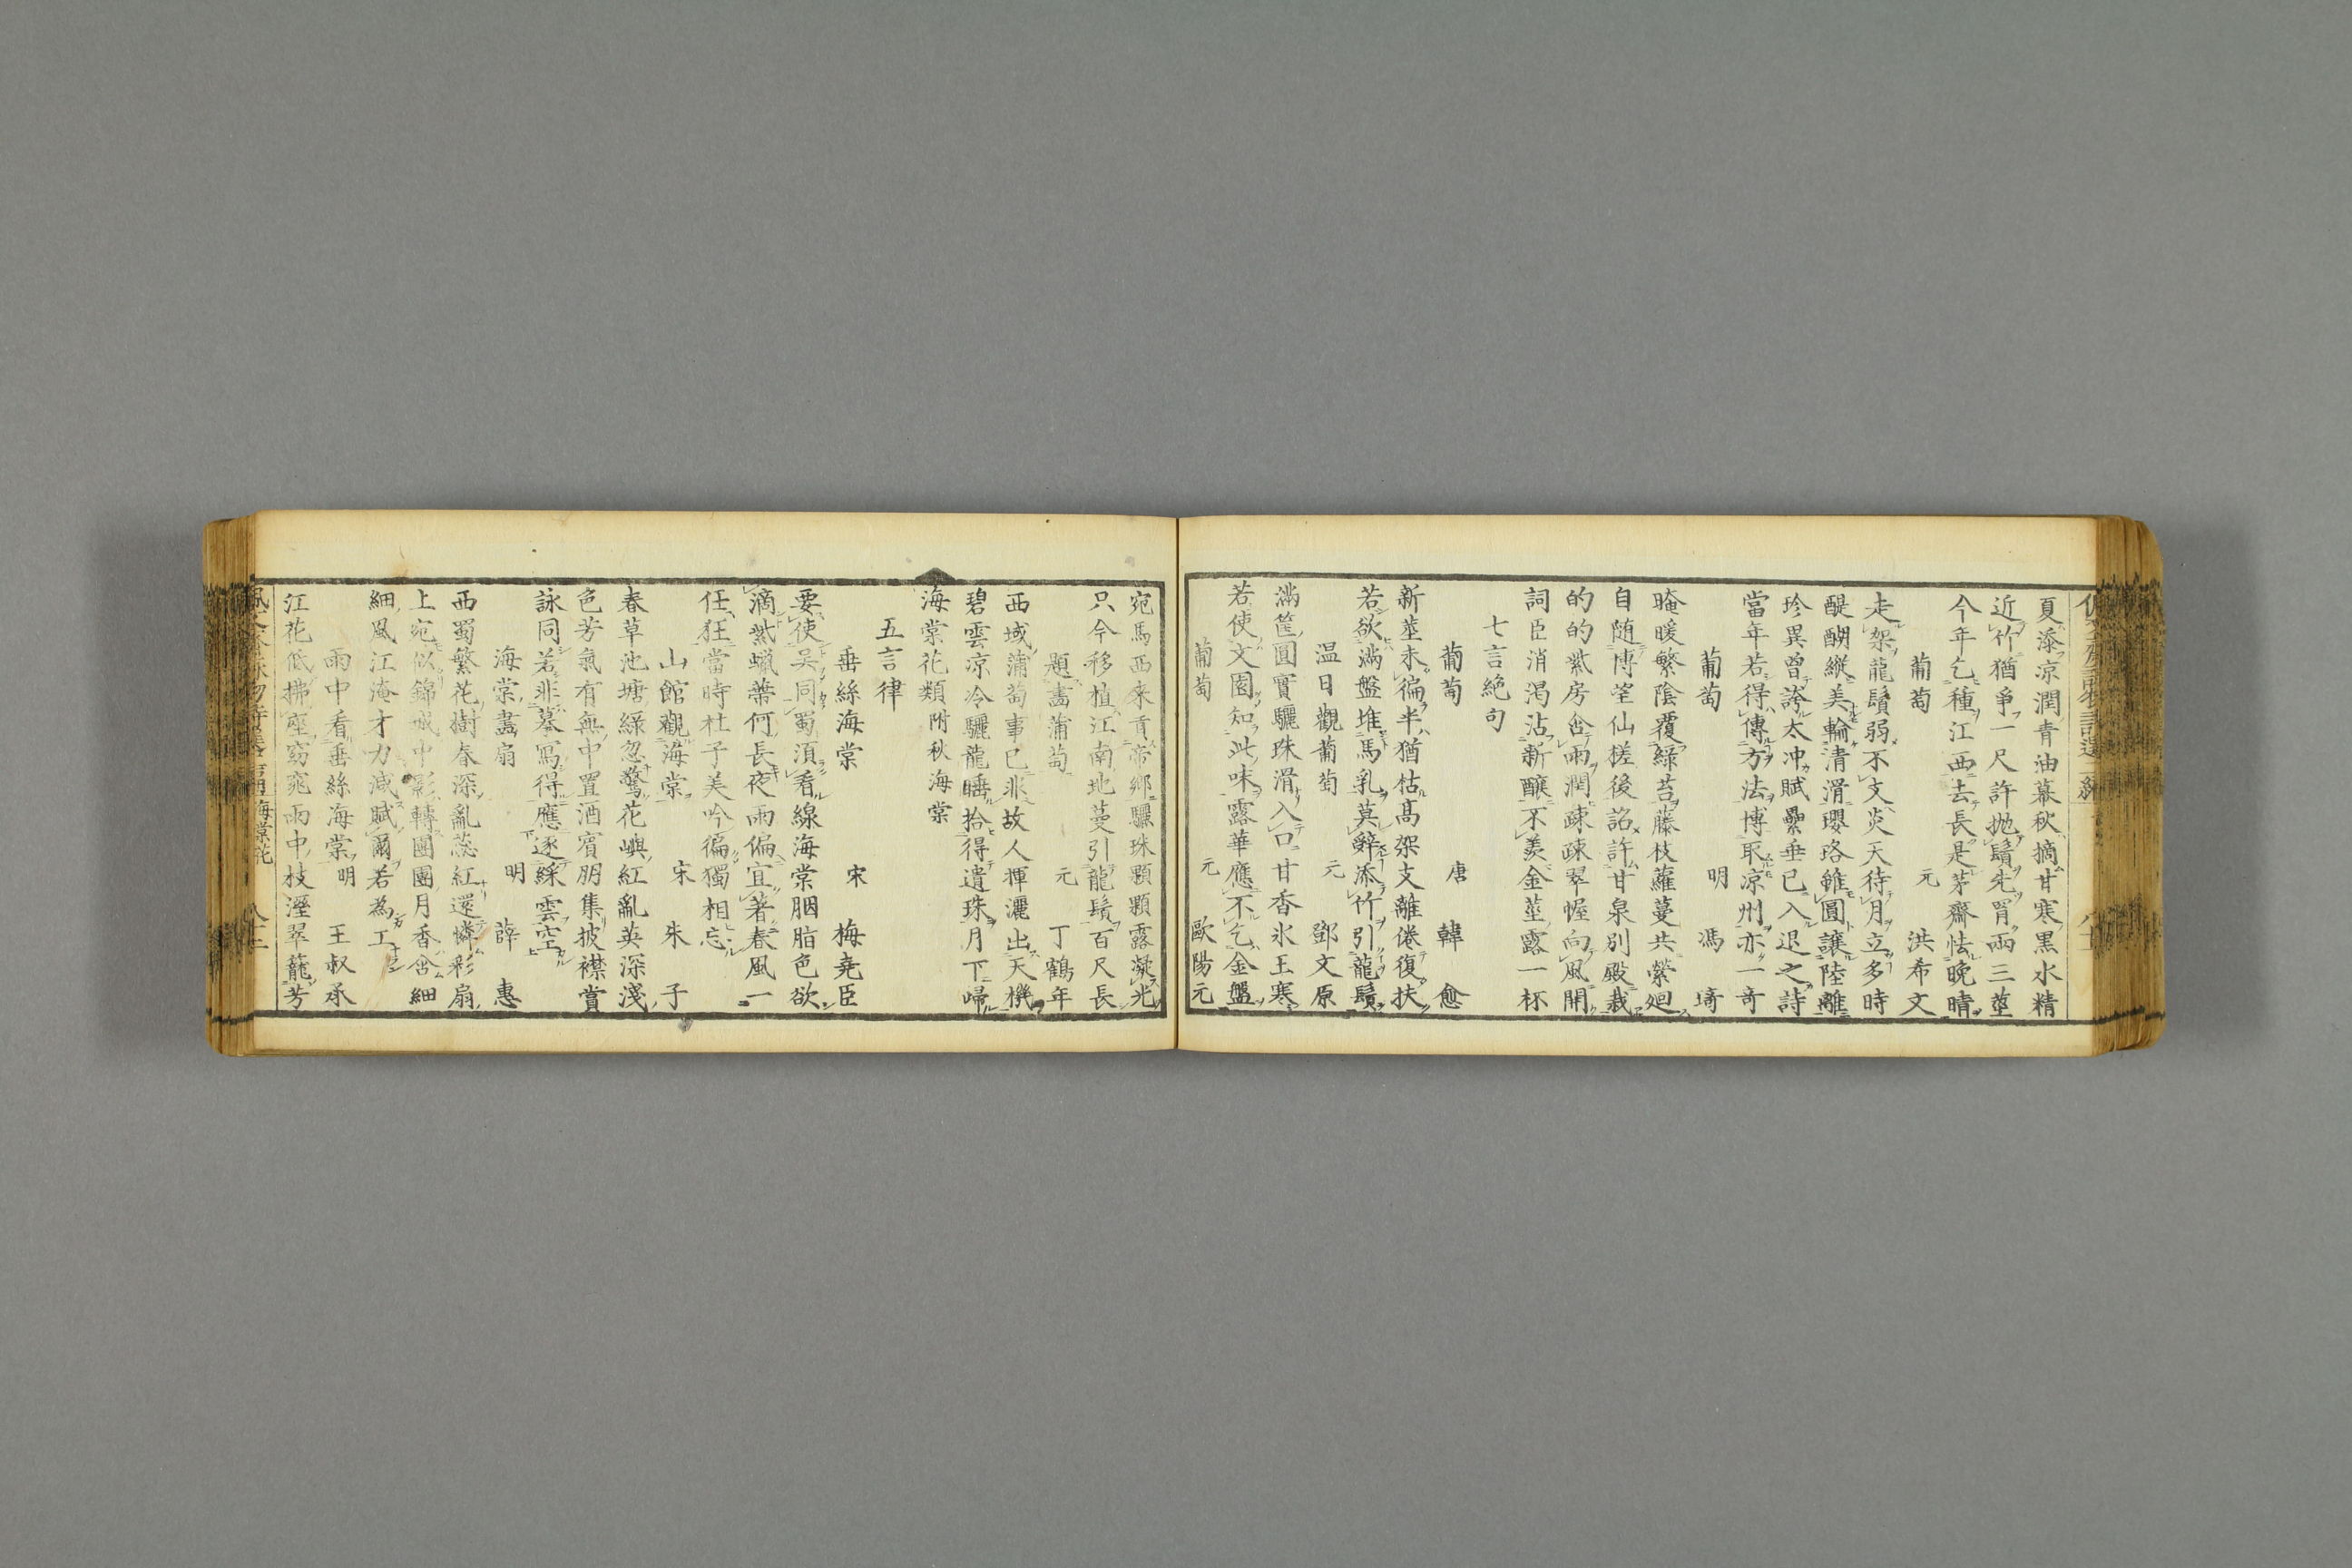 夏漆凉潤青油幕秋摘甘寒黒水精
近竹猶爭一尺許抛鬚先罥兩三莖
今年乞種江西去長是茅齋怯晩晴
葡萄 元 洪希文
走架龍鬚弱不支炎天待月立多時
醍醐縱美輪清滑瓔珞雖圓讓陸離
珍異曾誇太冲賦纍垂已入退之詩
當年若得傳方法博取凉州亦一奇
葡萄 明 馮琦
晻暖繁陰覆緑苔藤枝蘿蔓共縈廻
自随博望仙槎後詔許甘泉別殿栽
的的紫房含雨潤疎疎翠幄向風開
詞臣消渇沾新醸不羨金莖露一杯
七言絶句
葡萄 唐 韓愈
新莖未徧半猶枯髙架支離倦復扶
若欲滿盤堆馬乳莫辭添竹引龍鬚
温日觀葡萄 元 鄧文原
滿筐圓實驪珠滑入口甘香氷玉寒
若使文園知此味露華應不乞金盤
葡萄 元 歐陽元
宛馬西來貢帝郷驪珠顆顆露凝光
只今移植江南地蔓引龍鬚百尺長
題畵蒲萄 元 丁鶴年
西域蒲萄事已非故人揮灑出天機
碧雲凉冷驪龍睡拾得遺珠月下歸
海棠花類 附秋海棠
五言律
垂絲海棠 宋 梅堯臣
要使吴同蜀須看線海棠胭脂色欲
滴紫蠟蔕何長夜雨偏宜著春風一
任狂當時杜子美吟徧獨相忘
山館觀海棠 宋 朱子
春草池塘緑忽驚花嶼紅亂英深淺
色芳氣有無中置酒賓朋集披襟賞
詠同若非摹寫得應逐綵雲空
海棠畵扇 明 薛惠
西蜀繁花樹春深亂蕊紅還憐彩扇
上宛似錦城中影轉團團月香含細
細風江淹才力減賦爾若為工
雨中看垂絲海棠 明 王叔承
江花低拂座窈窕雨中枝溼翠籠芳